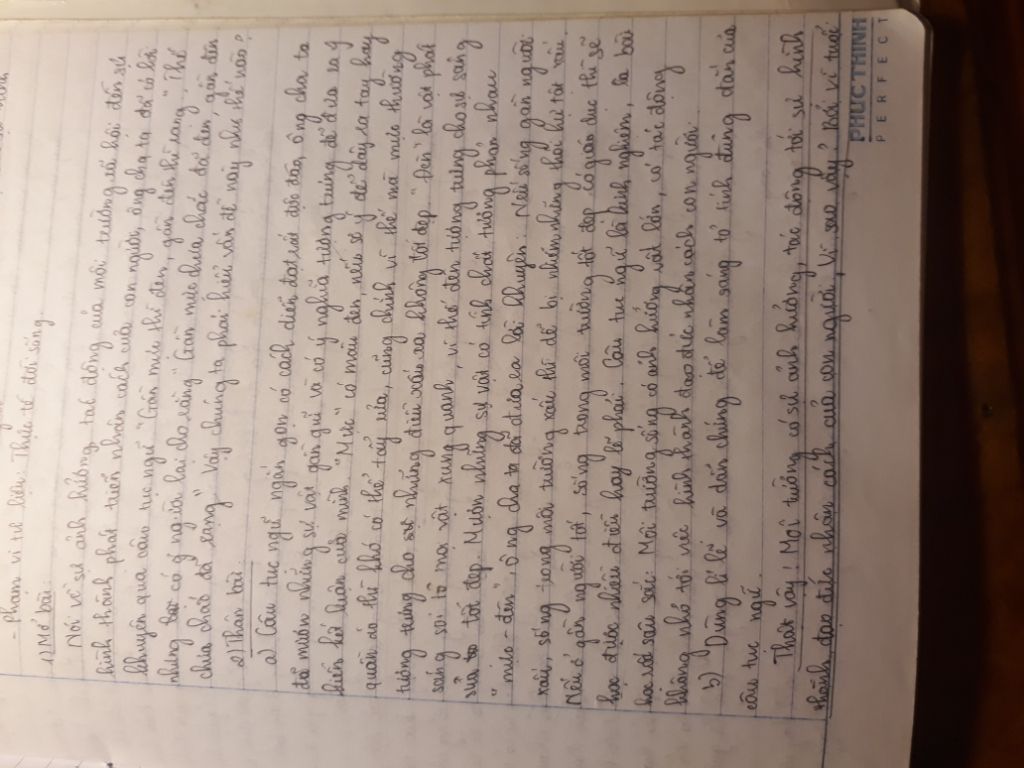 - Phạm vi tư liệu: Thực tế đời sống.
1) Mở bài:
Nói về sự ảnh hưởng tác động của môi trường xã hội đến sự
hình thành phát triển nhân cách của con người, ông cha ta đã có lời
khuyên qua câu tục ngữ "Gần mực thì đen, gần đèn thì sáng". Thế
nhưng có ý người lại cho rằng "Gần mực chưa chắc đã đen, gần đèn
chưa chắc đã sạng" Vậy chúng ta phải hiểu vấn đề này như thế nào?
2) Thân bài:
a) Câu tục ngữ ngắn gọn có cách diễn đạt rất độc đáo, ông cha ta
đã mượn những sự vật gần gũi và có ý nghĩa tượng trưng để đưa ra ý
kiến kết luận của mình "Mực" có màu đen nếu sơ ý để dây ra tay hay
quần áo thì khó có thể tẩy rửa, cũng chính vì thế mà mực thường
tượng trưng cho những điều xấu xa không tốt đẹp. "Đèn" là vật phát
sáng soi tỏ mọi vật xung quanh, vì thế đèn tượng trưng cho sự sáng
sủa tốt đẹp. Mượn những sự vật có tính chất tương phản nhau
"mực - đèn", ông cha ta đã đưa ra lời khuyên: Nếu sống gần người
xấu, sống trong môi trường xấu thì dễ bị nhiễm những thói hư tật xấu.
Nếu ở gần người tốt, sống trong môi trường tốt đẹp có giáo dục thì sẽ
học được nhiều điều hay lẽ phải. Câu tục ngữ là kinh nghiệm, là bài
học sâu sắc: Môi trường sống có ảnh hưởng rất lớn, có tác động
không nhỏ tới việc hình thành đạo đức nhân cách con người.
b) Dùng lí lẽ và dẫn chứng để làm sáng tỏ tính đúng đắn của
câu tục ngữ.
Thật vậy! Môi trường có sự ảnh hưởng, tác động tới sự hình
thành đạo đức nhân cách của con người, Vì sao vậy? Bởi vì tuổi
PHUC THINH
PERFECT